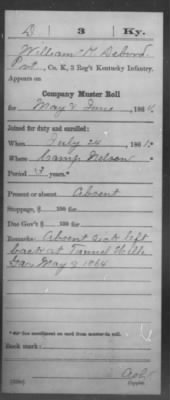 D | 3 | Ky.
William H Debord
Pvt, Co. K, 3 Reg't Kentucky Infantry.
Appears on
Company Muster Roll
for May & June, 1864
Joined for duty and enrolled:
When July 24, 1861*
Where Camp Nelson
Period 3 years.*
Present or absent Absent
Stoppage, $ 100 for
Due Gov't $ 100 for
Remarks: Absent sick left
back at Tunnel Hill
Ga. May 8 1864
Book mark:
(Copyist.